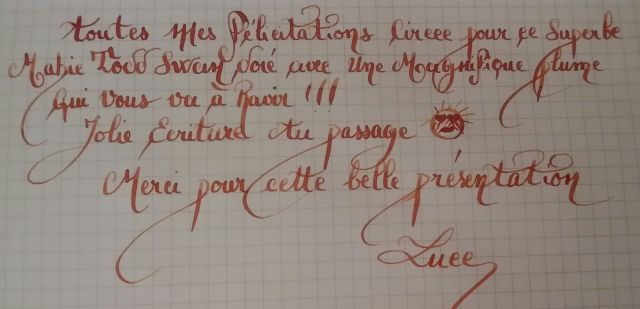 toutes mes Félicitations pour ce Superbe
Mabie Todd Swan Doré avec Une Magnifique plume
Qui vous va à Ravir !!!
Jolie Ecriture Au passage
Merci pour cette belle présentation
Luce